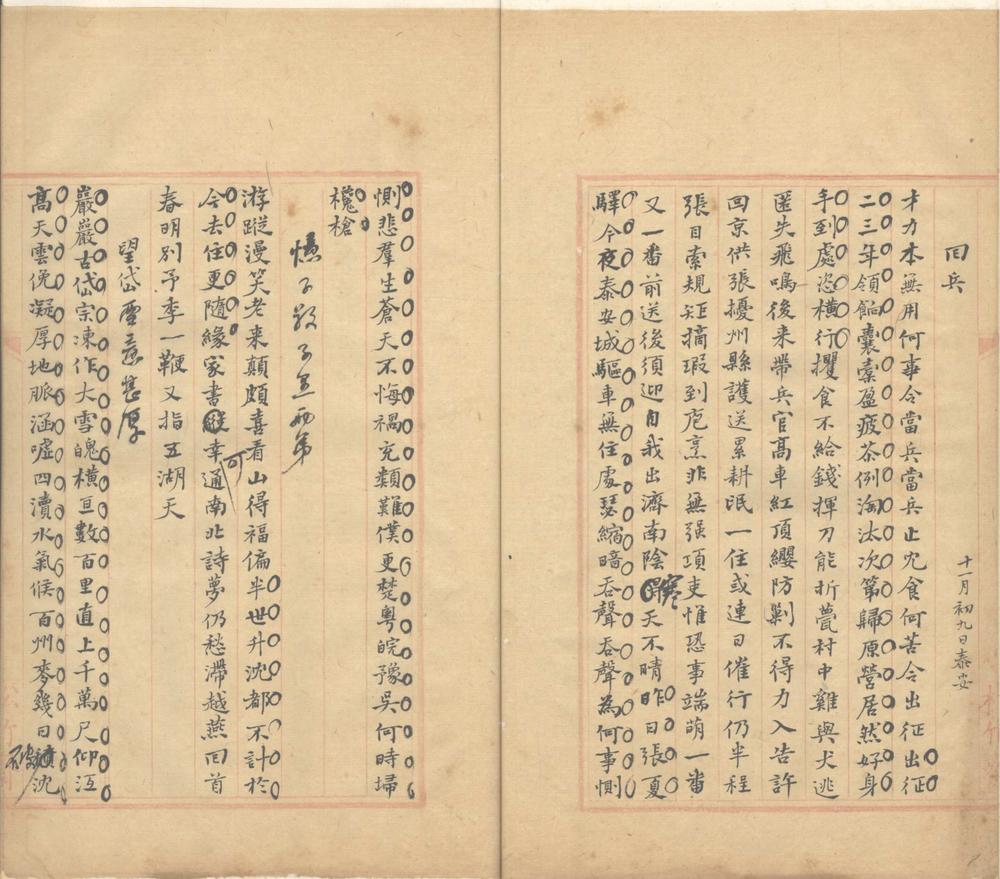 回兵
十一月初九日泰安
才力本無用何事令當兵當兵止宂食何苦令出征出征
二三年領餉囊橐盈疲苶例淘汰次第歸原營居然好身
手到處恣橫行攫食不給錢揮刀能折甍村中雞與犬逃
匿失飛鳴後来帶兵官高車紅頂纓防剿不得力入告許
回京供張擾州縣護送累耕氓一住或連日催行仍半程
張目索規矩摘瑕到庖烹非無强項吏惟恐事端萌一番
又一番前送後須迎自我出濟南陰寒天不晴昨日張夏
驛今夜泰安城驅車無住處瑟縮暗吞聲吞聲為何事惻
惻悲羣生蒼天不悔禍充類難僕更楚粤皖豫吳何時埽
欃槍
憶子毅子愚兩弟
游蹤漫笑老来顛頗喜看山得福偏半世升沈都不計於
今去住更隨緣家書可幸通南北詩夢仍愁滯越燕回首
春明别予季一鞭又指五湖天
望岱雪意甚厚
巖巖古岱宗凍作大雪魄橫亘數百里直上千萬尺仰沍
高天雲俛凝厚地脈涵噓四瀆水氣候百州麥幾日破沈